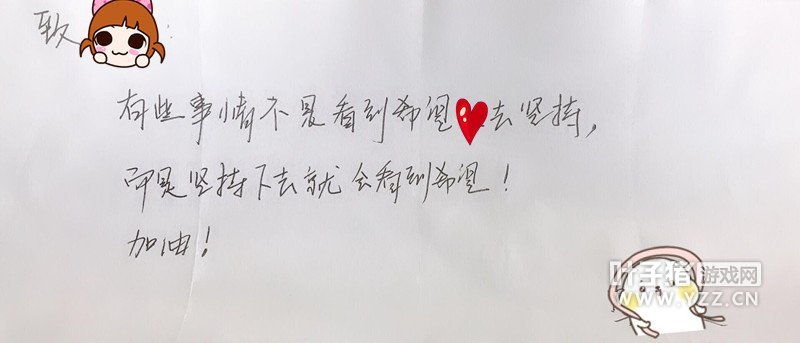 致
有些事情不是看到希望去坚持，
而是坚持下去就会看到希望！
加油！
叶子猪游戏网
WWW.YZZ.CN